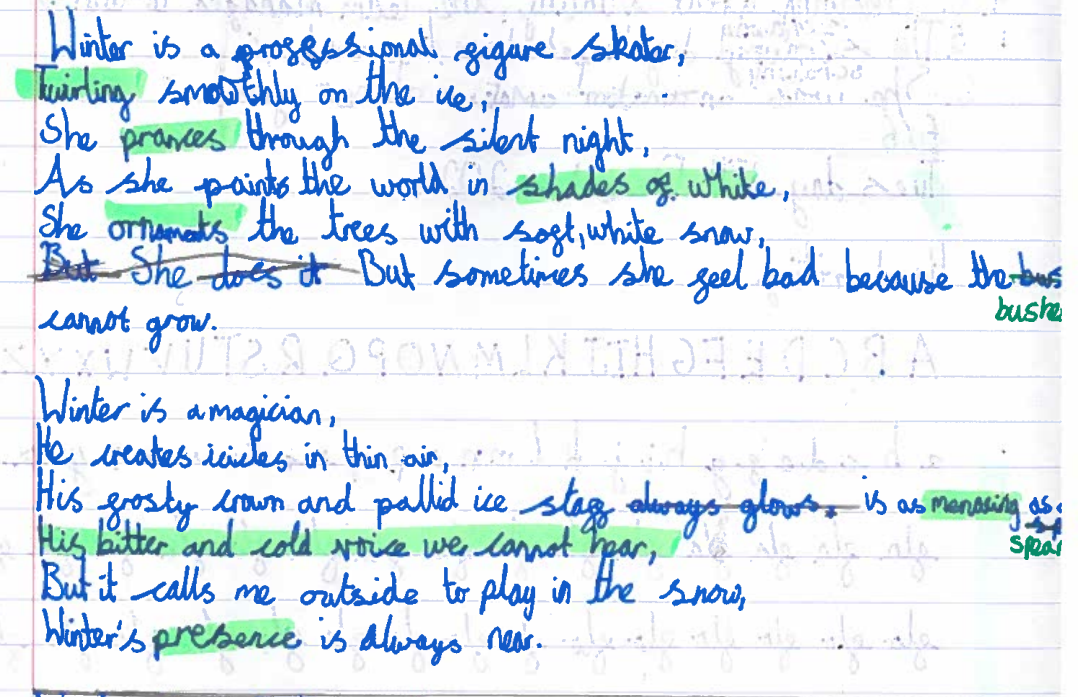 Winter is a professional figure skater,
Twirling smoothly on the ice,
She prances through the silent night,
As she paints the world in shades of white,
She ornaments the trees with soft, white snow,
But She does it But sometimes she feel bad because the bus
bushe
cannot grow.
Winter is a magician,
He creates icicles in thin air,
His frosty crown and pallid ice staff always glows. is as menasing as
spear
His bitter and cold voice we cannot hear,
But it calls me outside to play in the snow,
Winter's presence is always near.